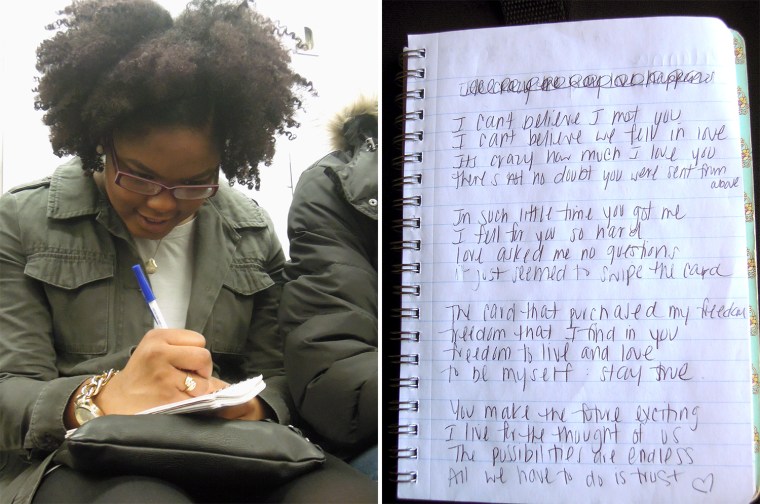 I cant believe I met you
I cant believe we fell in love
Its crazy how much I love you
theres not no doubt you were sent from
above
In such little time you got me
I fell for you so hard
love asked me no questions
it just seemed to swipe the card
The card that purchased my freedom
freedom that I find in you
freedom to live and love
to be myself & stay true.
You make the future exciting
I live for the thought of us
The possibilities are endless
All we have to do is trust ♡